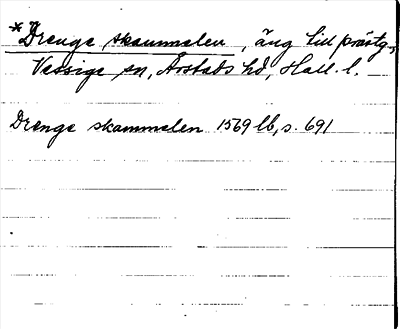 *Drenge skammelen, äng till prästg.,
Vessige sn, Årstads hd, Hall. l.
Drenge skammelen 1569 lb, s. 691